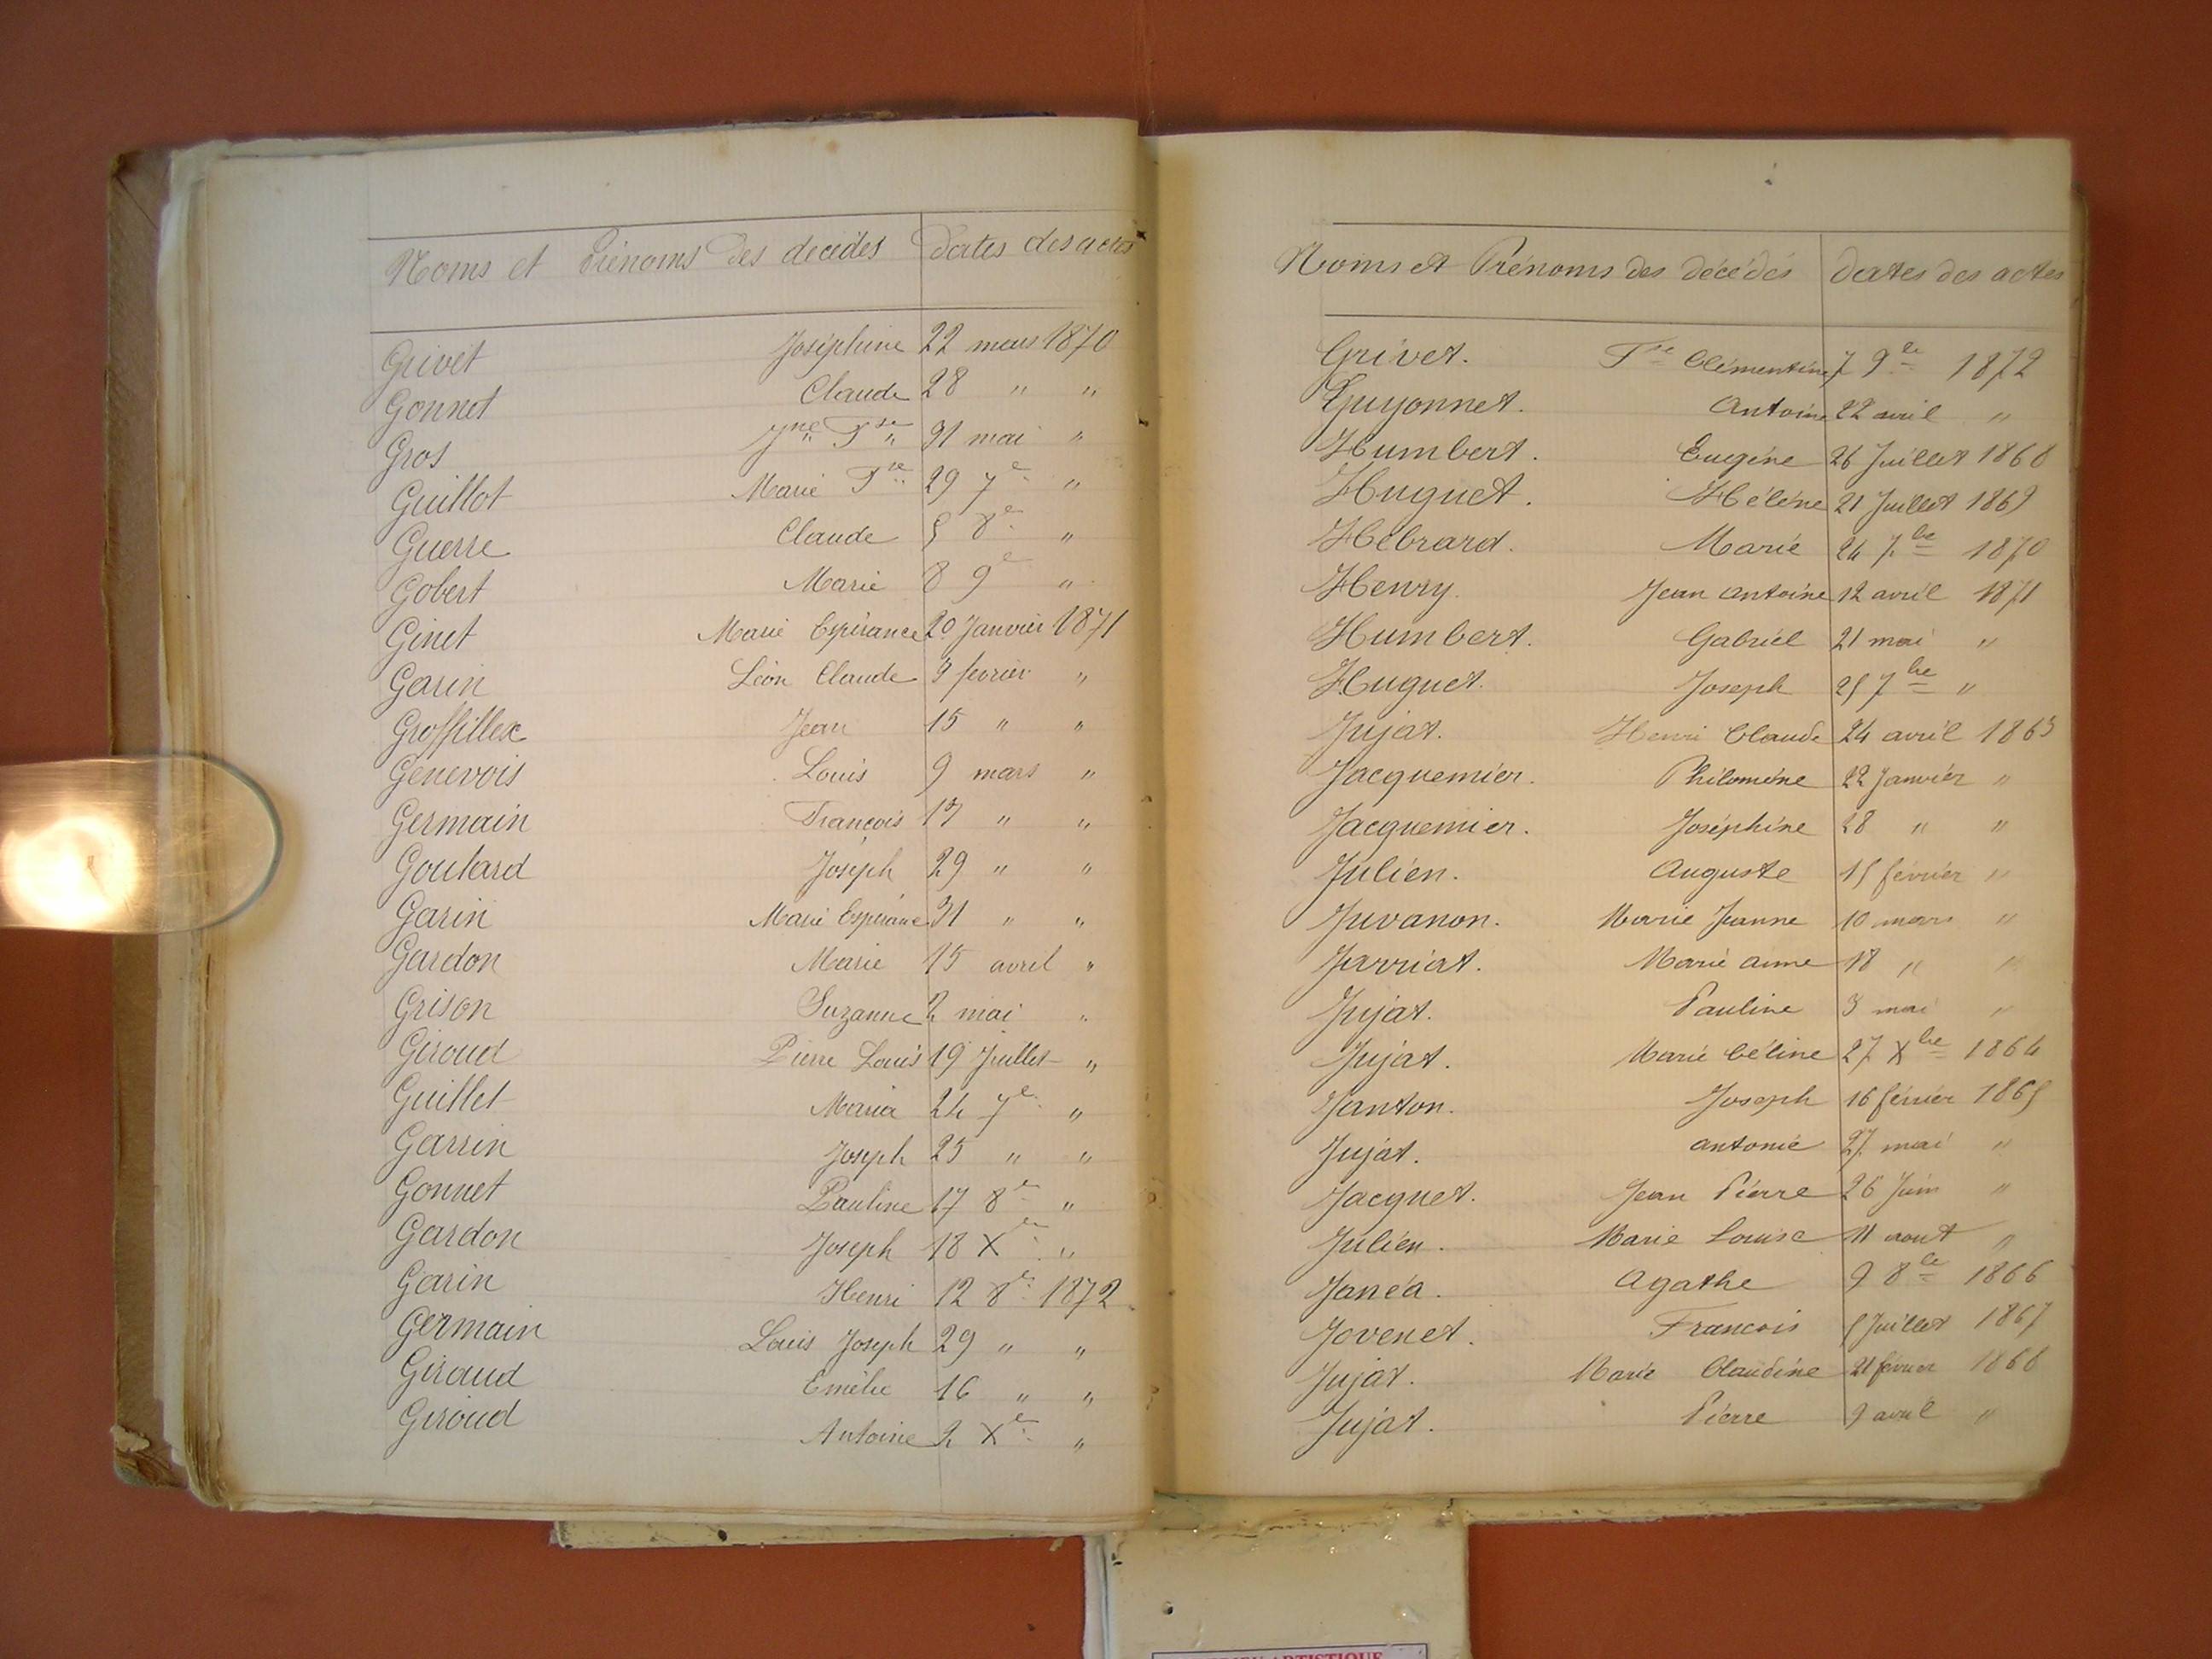 Noms et Prénoms des décédés dates des actes
Grivet Joséphine 22 mars 1870
Gonnet Claude 28 " "
Gros Jne Fse 31 mai "
Guillot Marie Fse 29 7e "
Guerre Claude 5 8e "
Gobert Marie 8 9e "
Ginet Marie Espérance 20 Janvier 1871
Garin Léon Claude 3 fevrier "
Groffillex Jean 15 " "
Genevois Louis 9 mars "
Germain François 17 " "
Goutard Joséph 29 " "
Garin Marie Espérance 31 " "
Gardon Marie 15 avril "
Grison Suzanne 2 mai "
Giroud Pierre Louis 19 Juillet "
Guillet Maria 24 7e "
Garrin Joseph 25 " "
Gonnet Pauline 17 8e "
Gardon Joseph 18 Xe "
Garin Henri 12 8e 1872
Germain Louis Joseph 29 " "
Giraud Emélie 16 " "
Giroud Antoine 2 Xe "
Noms et Prénoms des décédés dates des actes
Grivet. Fse Clémentine 7 9be 1872
Guyonnet. Antoine 22 avril "
Humbert. Eugéne 26 Juillet 1868
Huguet. Héléne 21 Juillet 1869
Hebrard. Marie 24 7bre 1870
Henry. Jean Antoine 12 avril 1871
Humbert. Gabriel 21 mai "
Huguet. Joseph 25 7bre "
Jujat. Henri Claude 24 avril 1863
Jacquemier. Philoméne 22 Janvier "
Jacquemier. Joséphine 28 " "
Julien. Auguste 15 février "
Juvanon. Marie Jeanne 10 mars "
Jarriat. Marie anne 18 " "
Jujat. Pauline 3 mai "
Jujat. Marie Céline 27 Xbre 1864
Janton. Joseph 16 février 1865
Jujat. antonie 27 mai "
Jacquet. Jean Pierre 26 Juin "
Julien. Marie Louise 11 aout "
Janéa. Agathe 9 8be 1866
Jovenet. Francois 5 Juillet 1867
Jujat. Marie Claudine 21 février 1868
Jujat. Pierre 9 avril "